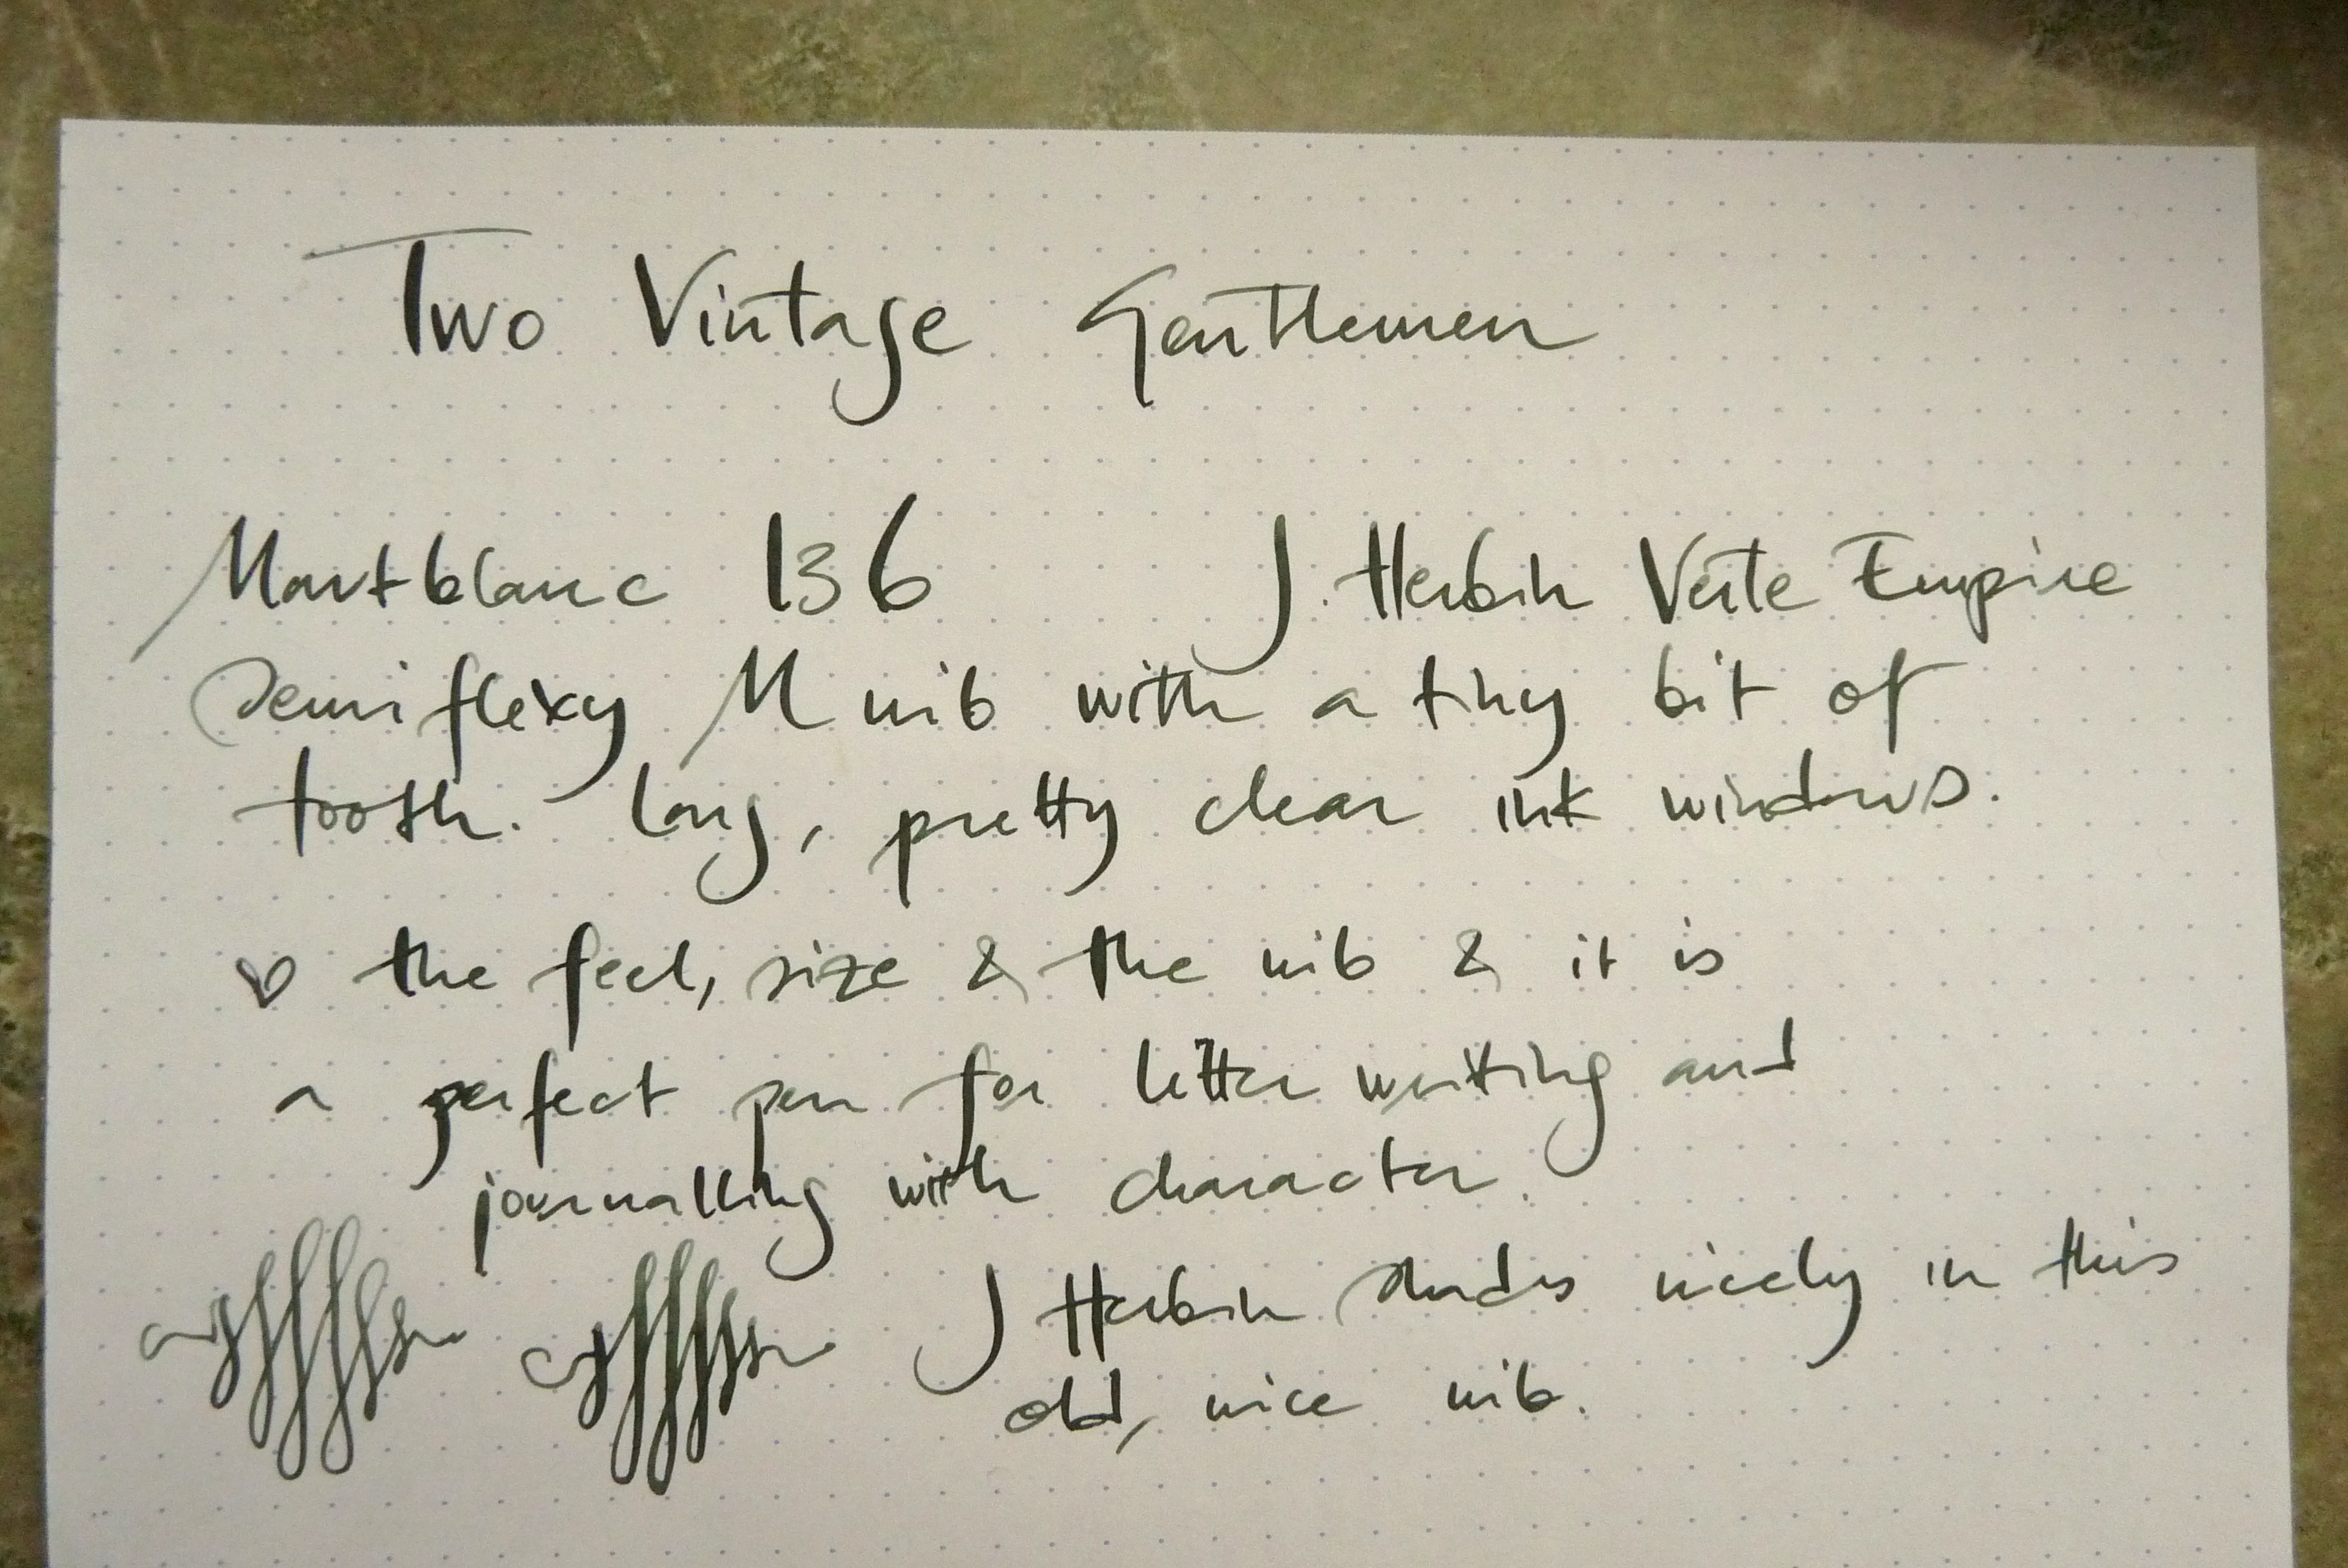 Two Vintage Gentlemen
Montblanc 136 J. Herbin Verte Empire
Semiflexy M nib with a tiny bit of
tooth. Long, pretty clear ink windows.
♡ the feel, size & the nib & it is
a perfect pen for letter writing and
journalling with character.
J Herbin shades nicely in this
old, nice nib.